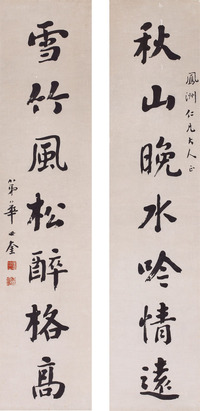 鳳洲仁兄大人正
秋山晚水吟情遠
雪竹風松醉格高
弟華世奎